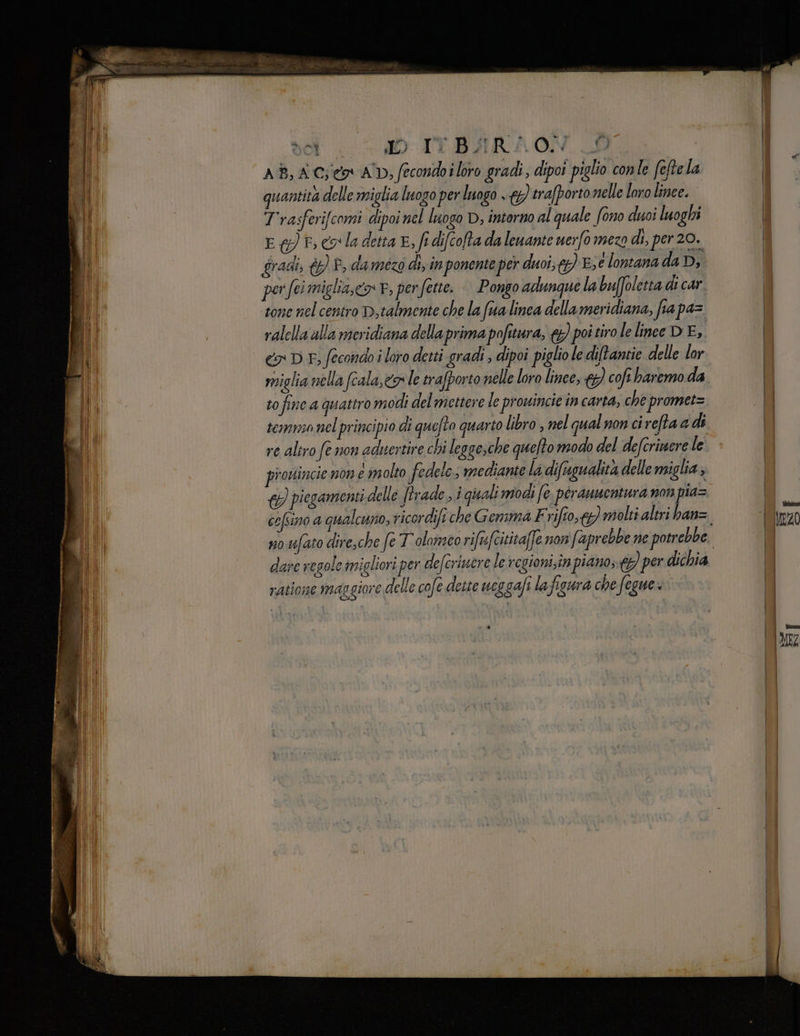 AB, AC, & AD, ſecondo i loro gradi, dipoi piglio con le ſeſte la
quantità delle miglia luogo per luogo . & traſporto nelle loro linee.
Trasferiſcomi dipoi nel luogo D, intorno al quale ſono duoi luoghi
E & F, & la detta E, ſi diſcoſta da leuante uerſo mezo dì, per 20.
gradi, & F, da mezo dì, in ponente per duoi, & E, è lontana da D,
per ſei miglia, & F, per ſette. Pongo adunque la buſſoletta di car
tone nel centro D, talmente che la ſua linea della meridiana, ſia pa=
ralella alla meridiana della prima poſitura, & poi tiro le linee D E,
& D F, ſecondo i loro detti gradi, dipoi piglio le diſtantie delle lor
miglia nella ſcala, & le traſporto nelle loro linee, & coſi haremo da
to fine a quattro modi del mettere le prouincie in carta, che promet=
temmo nel principio di queſto quarto libro, nel qual non ci reſta a di
re altro ſe non aduertire chi legge, che queſto modo del deſcriuere le
prouincie non è molto fedele, mediante la diſugualità delle miglia,
& piegamenti delle ſtrade, i quali modi ſe perauuentura non pia=
ceſsino a qualcuno, ricordiſi che Gemma Friſio, & molti altri han=
no uſato dire, che ſe Tolomeo riſuſcititaſſe non ſaprebbe ne potrebbe
dare regole migliori per deſcriuere le regioni, in piano, & per dichia
ratione maggiore delle coſe dette ueggaſi la figura che ſegue.